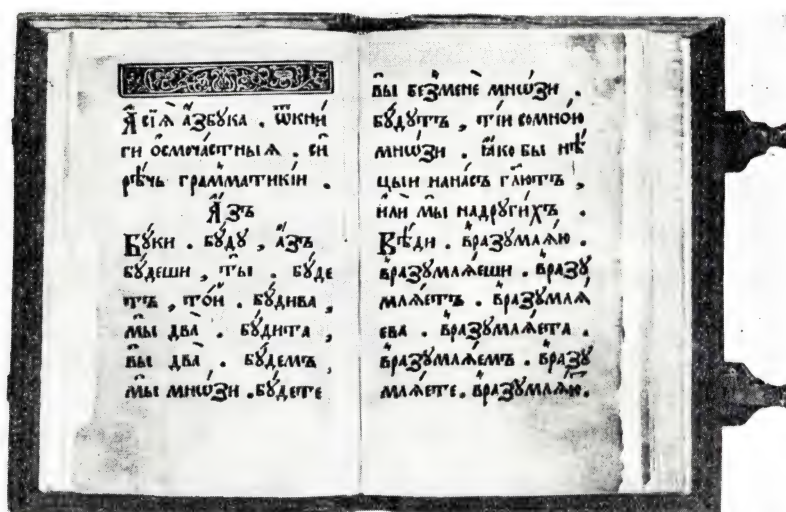 Ꙗ҆ сїѧ̀ а҆́збꙋка . ѿкни́
ги ѻ҆смоча́стныѧ . си́
рѣчь грамма́тикїи .
А҆́зъ
Бꙋ́ки . бꙋ́дꙋ , а҆́зъ
бꙋ́деши , ты̀ . бꙋ́де
тъ , то́й . бꙋ́дива ,
мы̀ два̀ . бꙋ́дита ,
вы̀ два̀ . бꙋ́демъ ,
мы̀ мнѡ́зи . бꙋ́дете
вы̀ безменѐ мнѡ́зи .
бꙋ́дꙋтъ , ті́и сомно́ю
мнѡ́зи . ꙗ҆́ко бы нѣ́
цыи нана́съ гл҃ютъ ,
и҆лѝ мы̀ надрꙋги́хъ .
Вѣ́ди . вразꙋмлѧ́ю .
вразꙋмлѧ́еши . вразꙋ
млѧ́етъ . вразꙋмлѧ́
ева . вразꙋмлѧ́ета .
вразꙋмлѧ́емъ . вразꙋ
млѧ́ете . вразꙋмлѧ́ю .